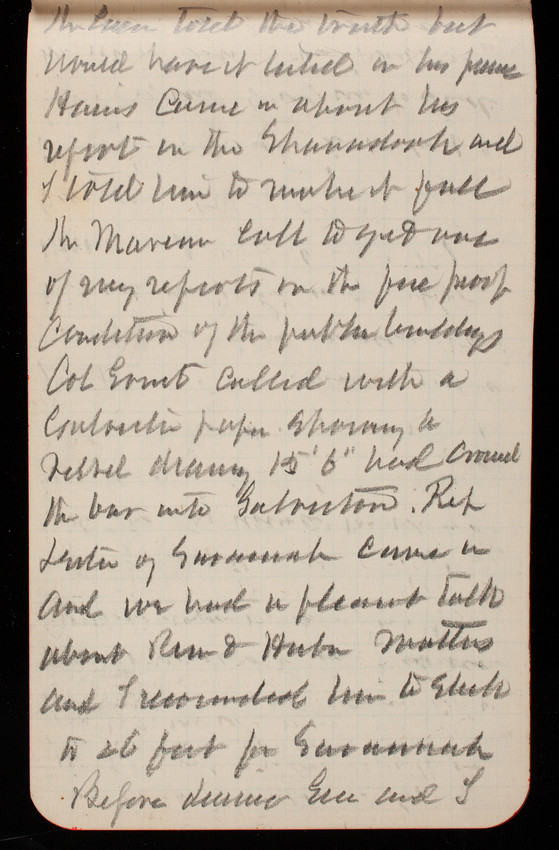 told the truth but
would have it in his
Harris came in about his
report on the Shanandoah and
I told him to make it full
Mr Marean call to get one
of my reports on the fire proof
Condition of the public buildings
Col Ernst called with a
paper showing a
vessel drawing 15' 6" had crossed
the bar into Galveston. Rep
Lester of Savannah came in
and we had a pleasant talk
about River & Harbor matters
and I him to stick
to 26 feet for Savannah
Before dinner Gen and I